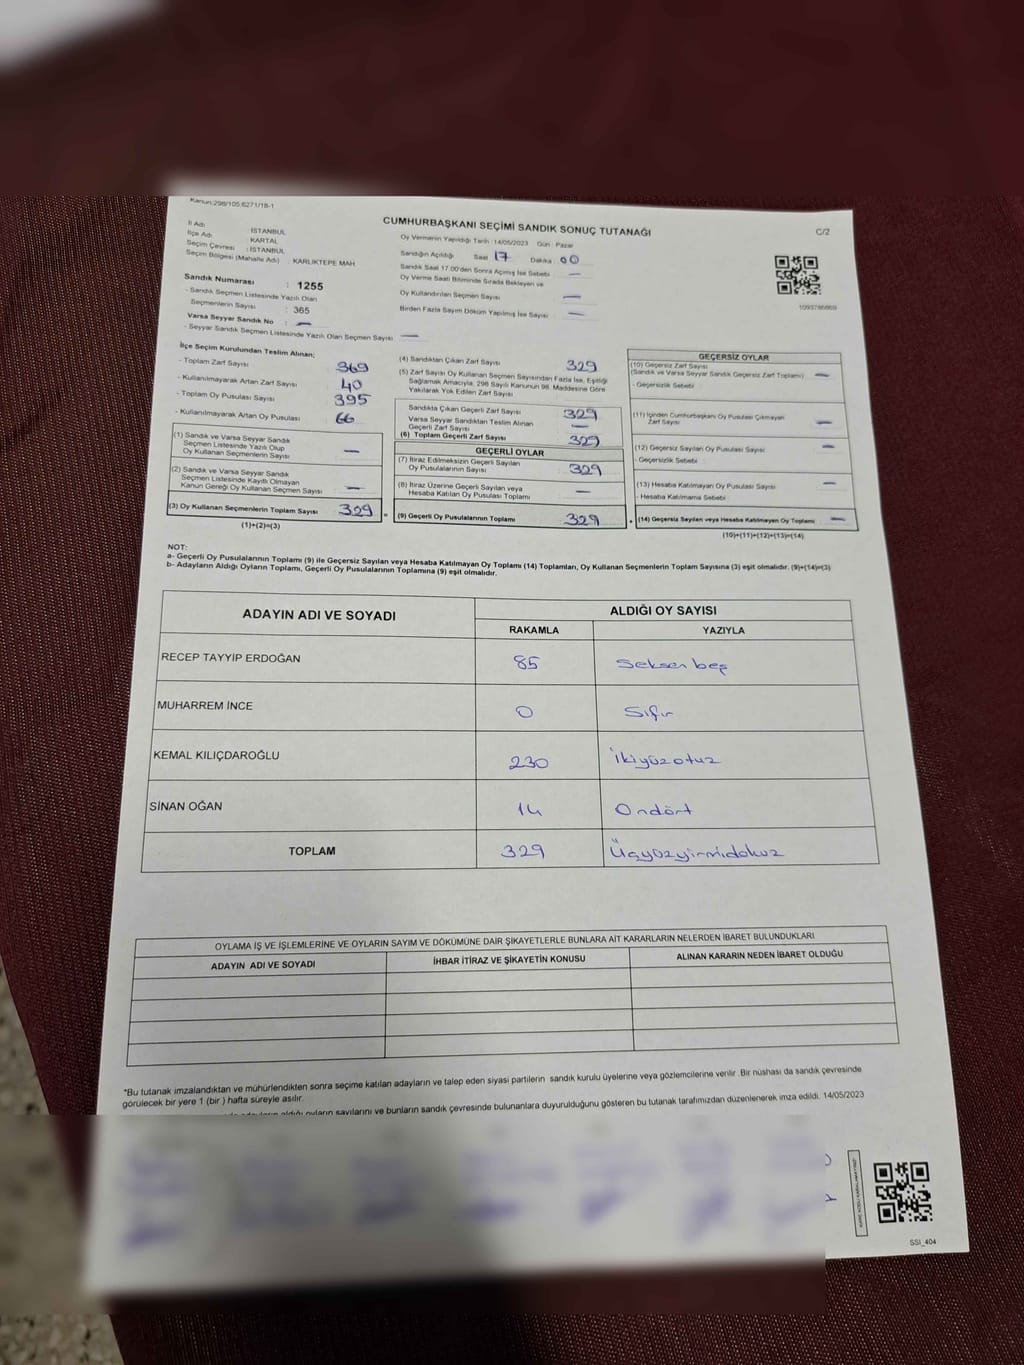 Kanun:298/105.6271/18-1
CUMHURBAŞKANI SEÇİMİ SANDIK SONUÇ TUTANAĞI
C/2
İl Adı : İSTANBUL
İlçe Adı : KARTAL
Seçim Çevresi : İSTANBUL
Seçim Bölgesi (Mahalle Adı) : KARLIKTEPE MAH
Sandık Numarası : 1255
- Sandık Seçmen Listesinde Yazılı Olan
Seçmenlerin Sayısı : 365
Varsa Seyyar Sandık No : —
- Seyyar Sandık Seçmen Listesinde Yazılı Olan Seçmen Sayısı : —
Oy Vermenin Yapıldığı Tarih :14/05/2023 Gün : Pazar
Sandığın Açıldığı Saat 17 Dakika 00
Sandık Saat 17.00'den Sonra Açılmış İse Sebebi —
Oy Verme Saati Bitiminde Sırada Bekleyen ve
Oy Kullandırılan Seçmen Sayısı —
Birden Fazla Sayım Döküm Yapılmış İse Sayısı —
İlçe Seçim Kurulundan Teslim Alınan;
- Toplam Zarf Sayısı 369
- Kullanılmayarak Artan Zarf Sayısı 40
- Toplam Oy Pusulası Sayısı 395
- Kullanılmayarak Artan Oy Pusulası 66
(1) Sandık ve Varsa Seyyar Sandık
Seçmen Listesinde Yazılı Olup
Oy Kullanan Seçmenlerin Sayısı —
(2) Sandık ve Varsa Seyyar Sandık
Seçmen Listesinde Kayıtlı Olmayan
Kanun Gereği Oy Kullanan Seçmen Sayısı —
(3) Oy Kullanan Seçmenlerin Toplam Sayısı 329
(1)+(2)=(3)
(4) Sandıktan Çıkan Zarf Sayısı 329
(5) Zarf Sayısı Oy Kullanan Seçmen Sayısından Fazla İse, Eşitliği
Sağlamak Amacıyla, 298 Sayılı Kanunun 98. Maddesine Göre
Yakılarak Yok Edilen Zarf Sayısı
Sandıkta Çıkan Geçerli Zarf Sayısı 329
Varsa Seyyar Sandıktan Teslim Alınan
Geçerli Zarf Sayısı —
(6) Toplam Geçerli Zarf Sayısı 329
GEÇERLİ OYLAR
(7) İtiraz Edilmeksizin Geçerli Sayılan
Oy Pusulalarının Sayısı 329
(8) İtiraz Üzerine Geçerli Sayılan veya
Hesaba Katılan Oy Pusulası Toplamı —
(9) Geçerli Oy Pusulalarının Toplamı 329
GEÇERSİZ OYLAR
(10) Geçersiz Zarf Sayısı
(Sandık ve Varsa Seyyar Sandık Geçersiz Zarf Toplamı) —
- Geçersizlik Sebebi
(11) İçinden Cumhurbaşkanı Oy Pusulası Çıkmayan
Zarf Sayısı —
(12) Geçersiz Sayılan Oy Pusulası Sayısı —
- Geçersizlik Sebebi
(13) Hesaba Katılmayan Oy Pusulası Sayısı —
- Hesaba Katılmama Sebebi
(14) Geçersiz Sayılan veya Hesaba Katılmayan Oy Toplamı —
(10)+(11)+(12)+(13)=(14)
NOT:
a- Geçerli Oy Pusulalarının Toplamı (9) ile Geçersiz Sayılan veya Hesaba Katılmayan Oy Toplamı (14) Toplamları, Oy Kullanan Seçmenlerin Toplam Sayısına (3) eşit olmalıdır. (9)+(14)=(3)
b- Adayların Aldığı Oyların Toplamı, Geçerli Oy Pusulalarının Toplamına (9) eşit olmalıdır.
ADAYIN ADI VE SOYADI ALDIĞI OY SAYISI
RAKAMLA YAZIYLA
RECEP TAYYİP ERDOĞAN 85 Seksen beş
MUHARREM İNCE 0 Sıfır
KEMAL KILIÇDAROĞLU 230 İkiyüzotuz
SİNAN OĞAN 14 Ondört
TOPLAM 329 Üçyüzyirmidokuz
OYLAMA İŞ VE İŞLEMLERİNE VE OYLARIN SAYIM VE DÖKÜMÜNE DAİR ŞİKAYETLERLE BUNLARA AİT KARARLARIN NELERDEN İBARET BULUNDUKLARI
ADAYIN ADI VE SOYADI İHBAR İTİRAZ VE ŞİKAYETİN KONUSU ALINAN KARARIN NEDEN İBARET OLDUĞU
*Bu tutanak imzalandıktan ve mühürlendikten sonra seçime katılan adayların ve talep eden siyasi partilerin sandık kurulu üyelerine veya gözlemcilerine verilir. Bir nüshası da sandık çevresinde
görülecek bir yere 1 (bir ) hafta süreyle asılır.
aldığı oyların sayılarını ve bunların sandık çevresinde bulunanlara duyurulduğunu gösteren bu tutanak tarafımızdan düzenlenerek imza edildi. 14/05/2023
SSI_404